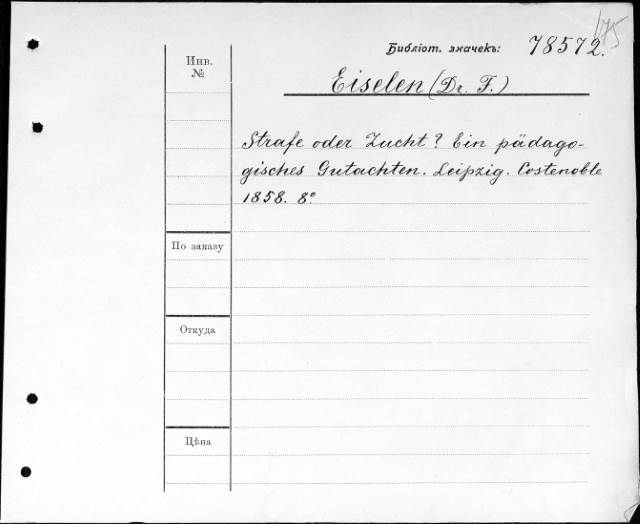 175
Библіот. значекъ: 78572.
Инв.
№
Eiselen (Dr. F.)
Strafe oder Zucht? Ein pädago-
gisches Gutachten. Leipzig. Costenoble
1858. 8°
По заказу
Откуда
Цѣна